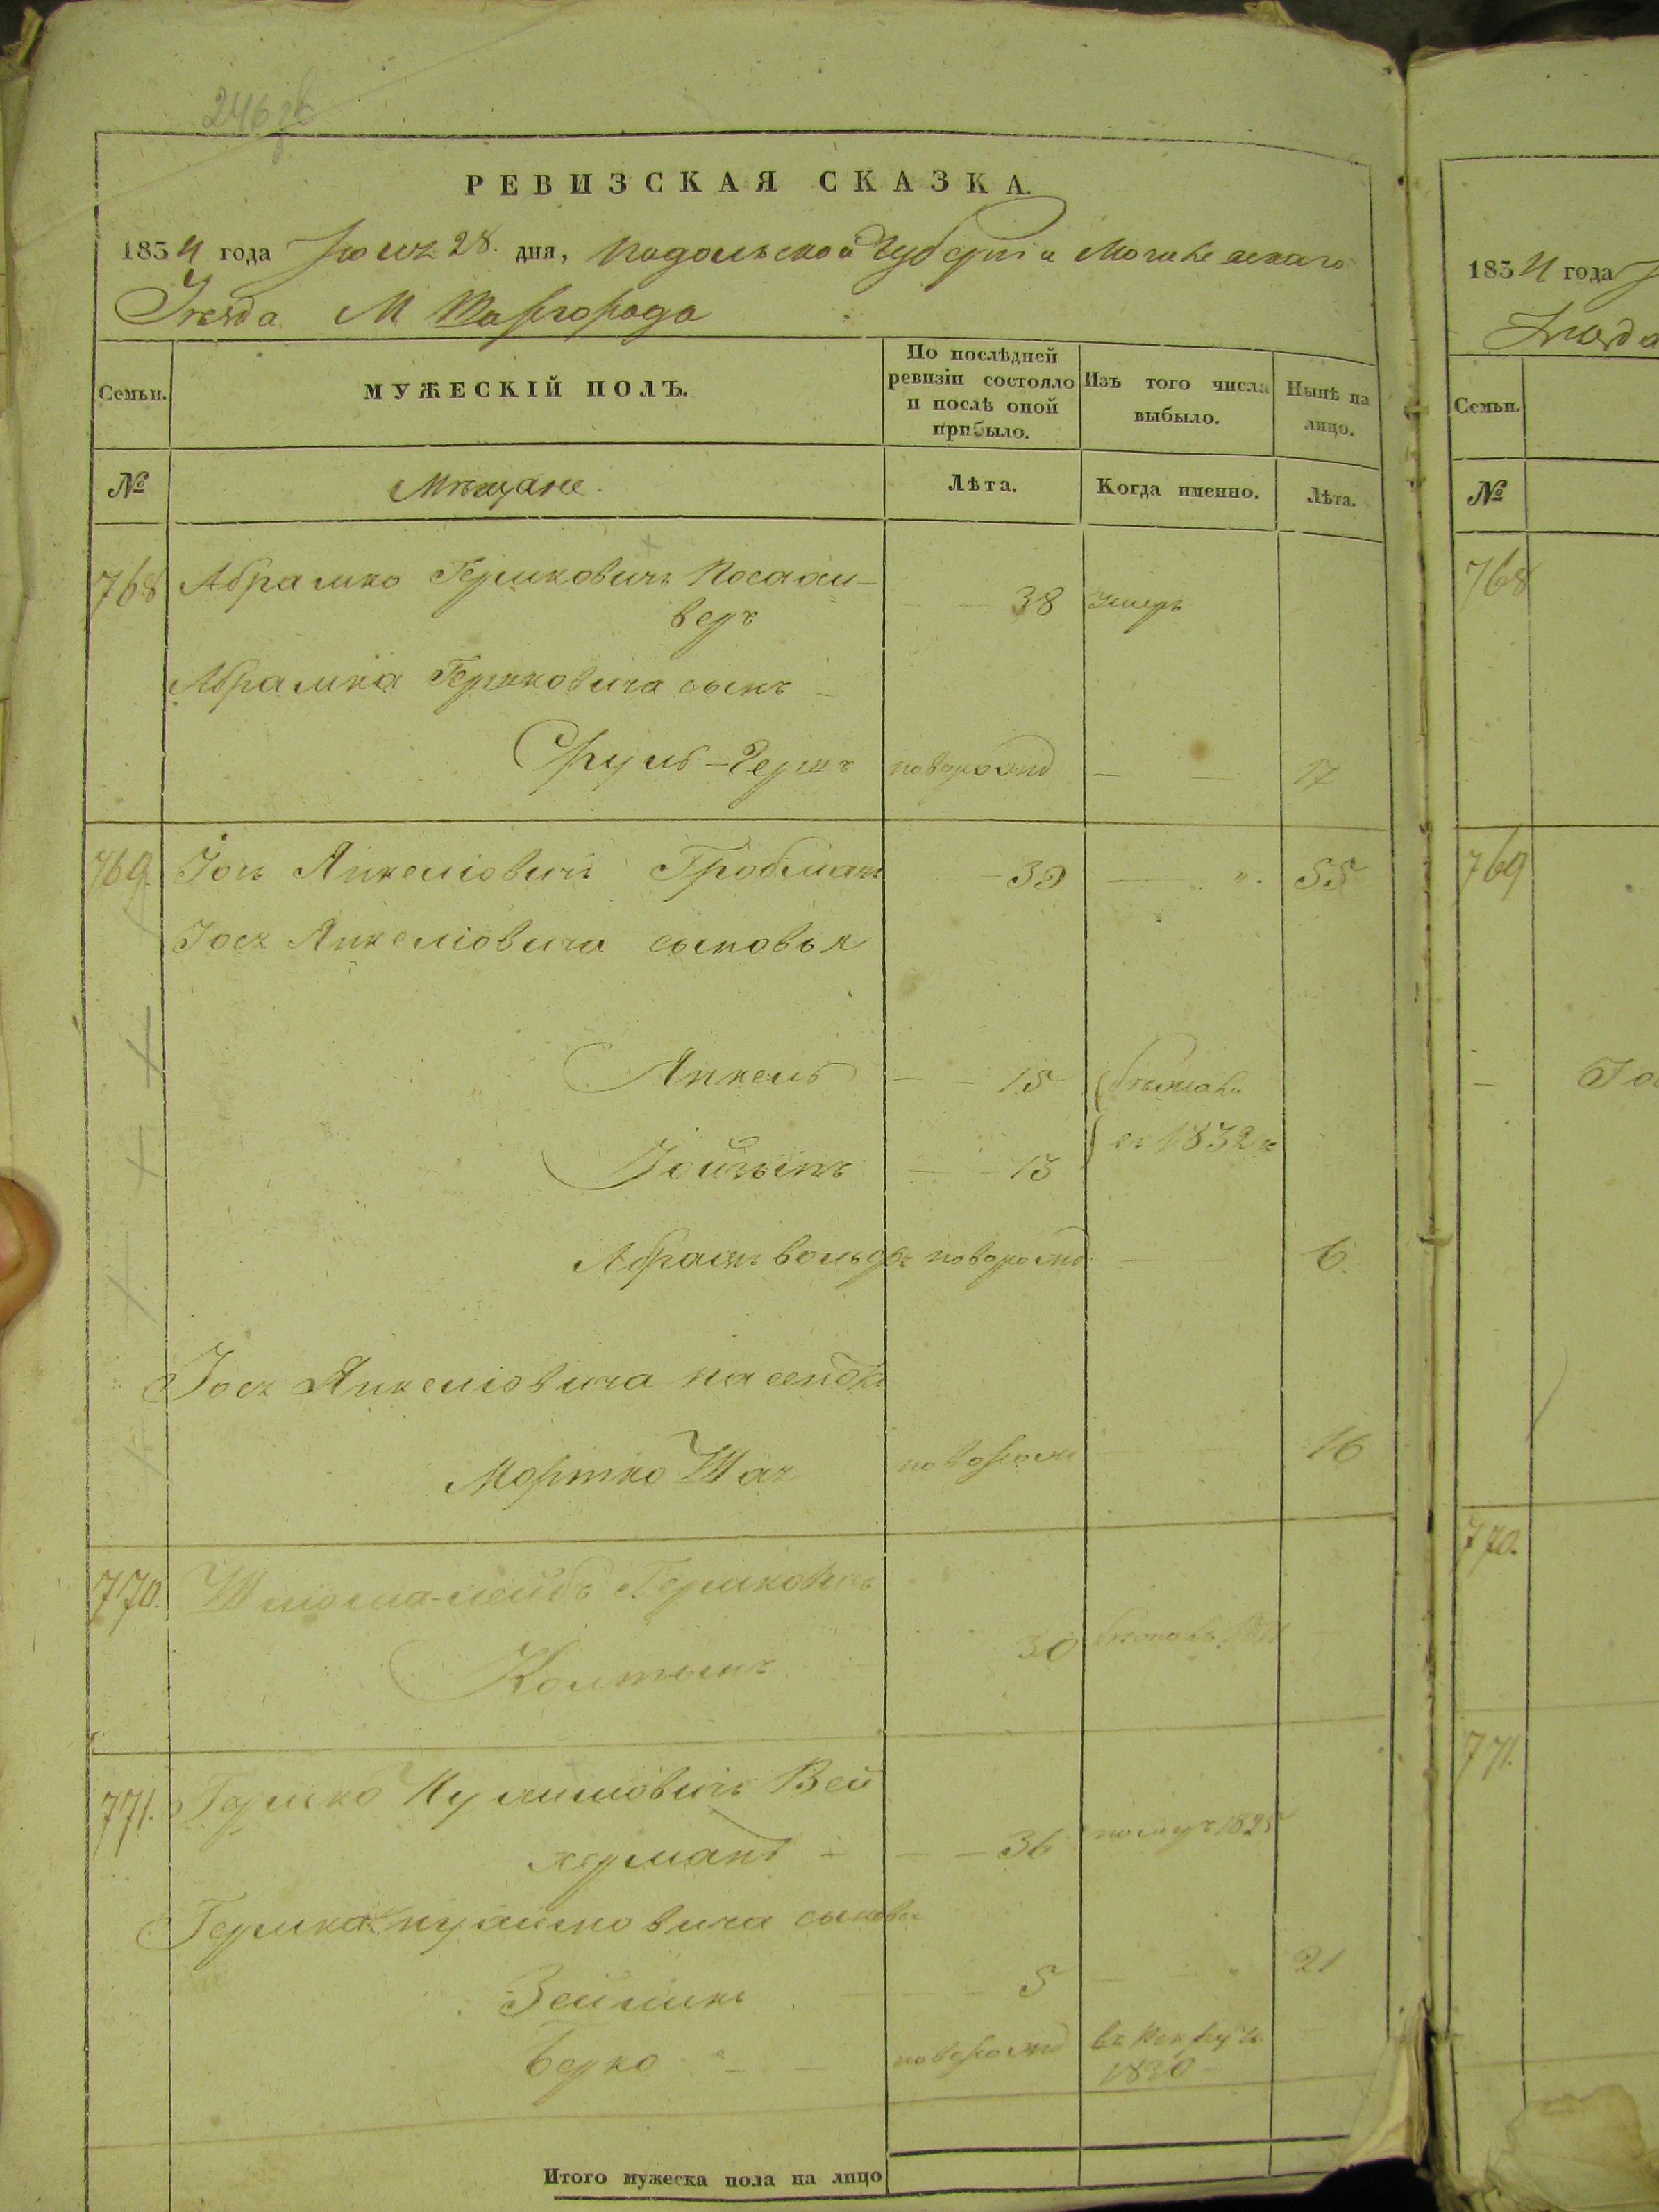 246 об
РЕВИЗСКАЯ СКАЗКА.
1834 года Июля 28 дня, Подольской Губерніи Могилевскаго
Уезда М Шаргорода
Семьи. МУЖЕСКІЙ ПОЛЪ. По послѣдней ревизіи состояло и послѣ оной прибыло. Изъ того числа выбыло. Нынѣ на лицо.
№ Мѣщане. Лѣта. Когда именно. Лѣта.
768 Абрамко Гершковичъ
веръ 38 умеръ
Абрамка Гершковича сынъ
Сруль-Гершъ новорожд 17
769. Іось Янкеліовичъ Гробманъ 39 55
Іося Янкеліовича сыновья
Янкель 15 бѣжали
Іойхынъ 13 въ 1832 г
Абрамъ вольфъ новорожд 6.
Іося Янкеліовича пасенокъ
Мортко Шая новорож 16
770. Шлома-лейбъ Гершковичъ
Колтынъ 30
771. Гершко Нухимовичъ Вей
херманъ 36 помер 1825
Гершка нухимовича сыновья
Зейликъ 5 21
Берко новорожд въ рекруты
1830
Итого мужеска пола на лицо
1834 года
Семьи.
№
768
769
770.
771.